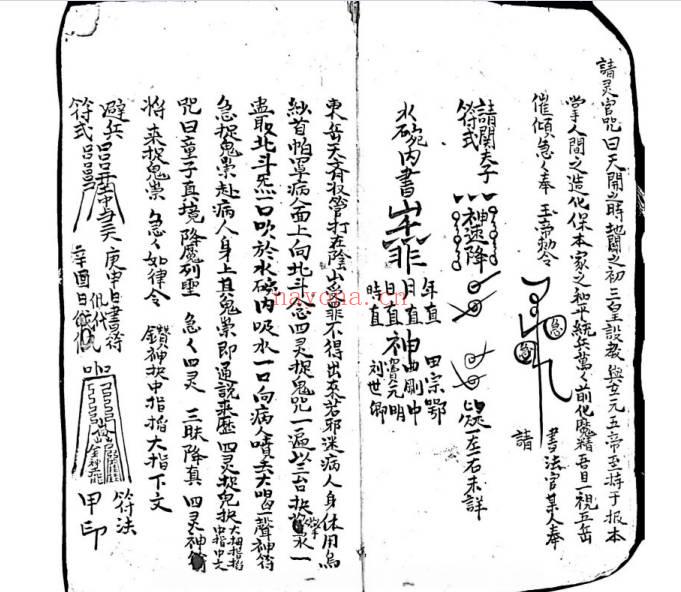 請灵官咒曰天開之時地闢之初三皇設教與五元五帝至將于报本
掌人間之造化保本家之和平統兵萬〻前化魔精吾目一視五岳
催傾急〻奉玉帝勅令
急急
書法官某人奉
請
請関夫子
符式
神速降
左一右未詳
水碗内書
年直
月直
日直
時直
神
田宗鄂
曲刷中
賈元明
刘世卿
東每天育収管打五陰山番罪不得出來若邪迷病人身体用烏
紗首怕罩病人面上向北斗念四灵捉鬼咒一遍以三台抉
盡取北斗炁一口吹於水碗内吸水一口向病人噴去大喝一聲神符
急捉鬼祟赴病人身上直鬼祟即通説來歷四灵捉鬼抉大拇指掐中指中文
咒曰童子真境降魔列聖急〻四灵三昧降真四灵神符
將來捉鬼祟急〻如律令鑽神抉中指掐大指下文
避兵
符式
庚申日書符
辛酉日
符法
甲印
nayona.cn